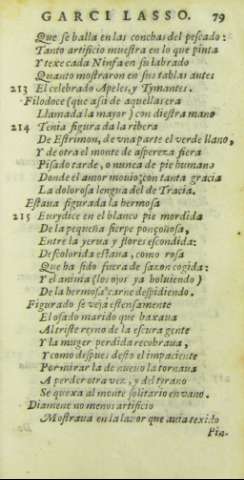 GARCI LASSO. 79
Que se halla en las conchas del pescado:
Tanto artificio muestra en lo que pinta
Y texe cada Ninfa en su labrado
Quanto mostraron en sus tablas antes
213 El celebrado Apeles, y Tymantes.
Filodoce (que assi de aquellas era
Llamada la mayor) con diestra mano
214 Tenia figurada la ribera
De Estrimon, de vna parte el verde llano,
Y de otra el monte de aspereza fiera
Pisado tarde, o nunca de pie humano
Donde el amor mouio, con tanta gracia
La dolorosa lengua del de Tracia.
Estaua figurada la hermosa
215 Eurydice en el blanco pie mordida
De la pequeña sierpe ponçoñosa,
Entre la yerua y flores escondida:
Descolorida estaua, como rosa
Que ha sido fuera de sazon cogida:
Y el anima (los ojos ya boluiendo)
De la hermosa carne despidiendo.
Figurado se veja estensamente
El osado marido que baxaua
Al triste reyno de la escura gente
Y la muger perdida recobraua,
Y como despues desto el impaciente
Por mirarla de nueuo la tornaua
A perder otra vez, y del tyrano
Se quexa al monte solitario en vano.
Dianene no menos artificio
Mostraua en la lauor que auia texido
Pin-